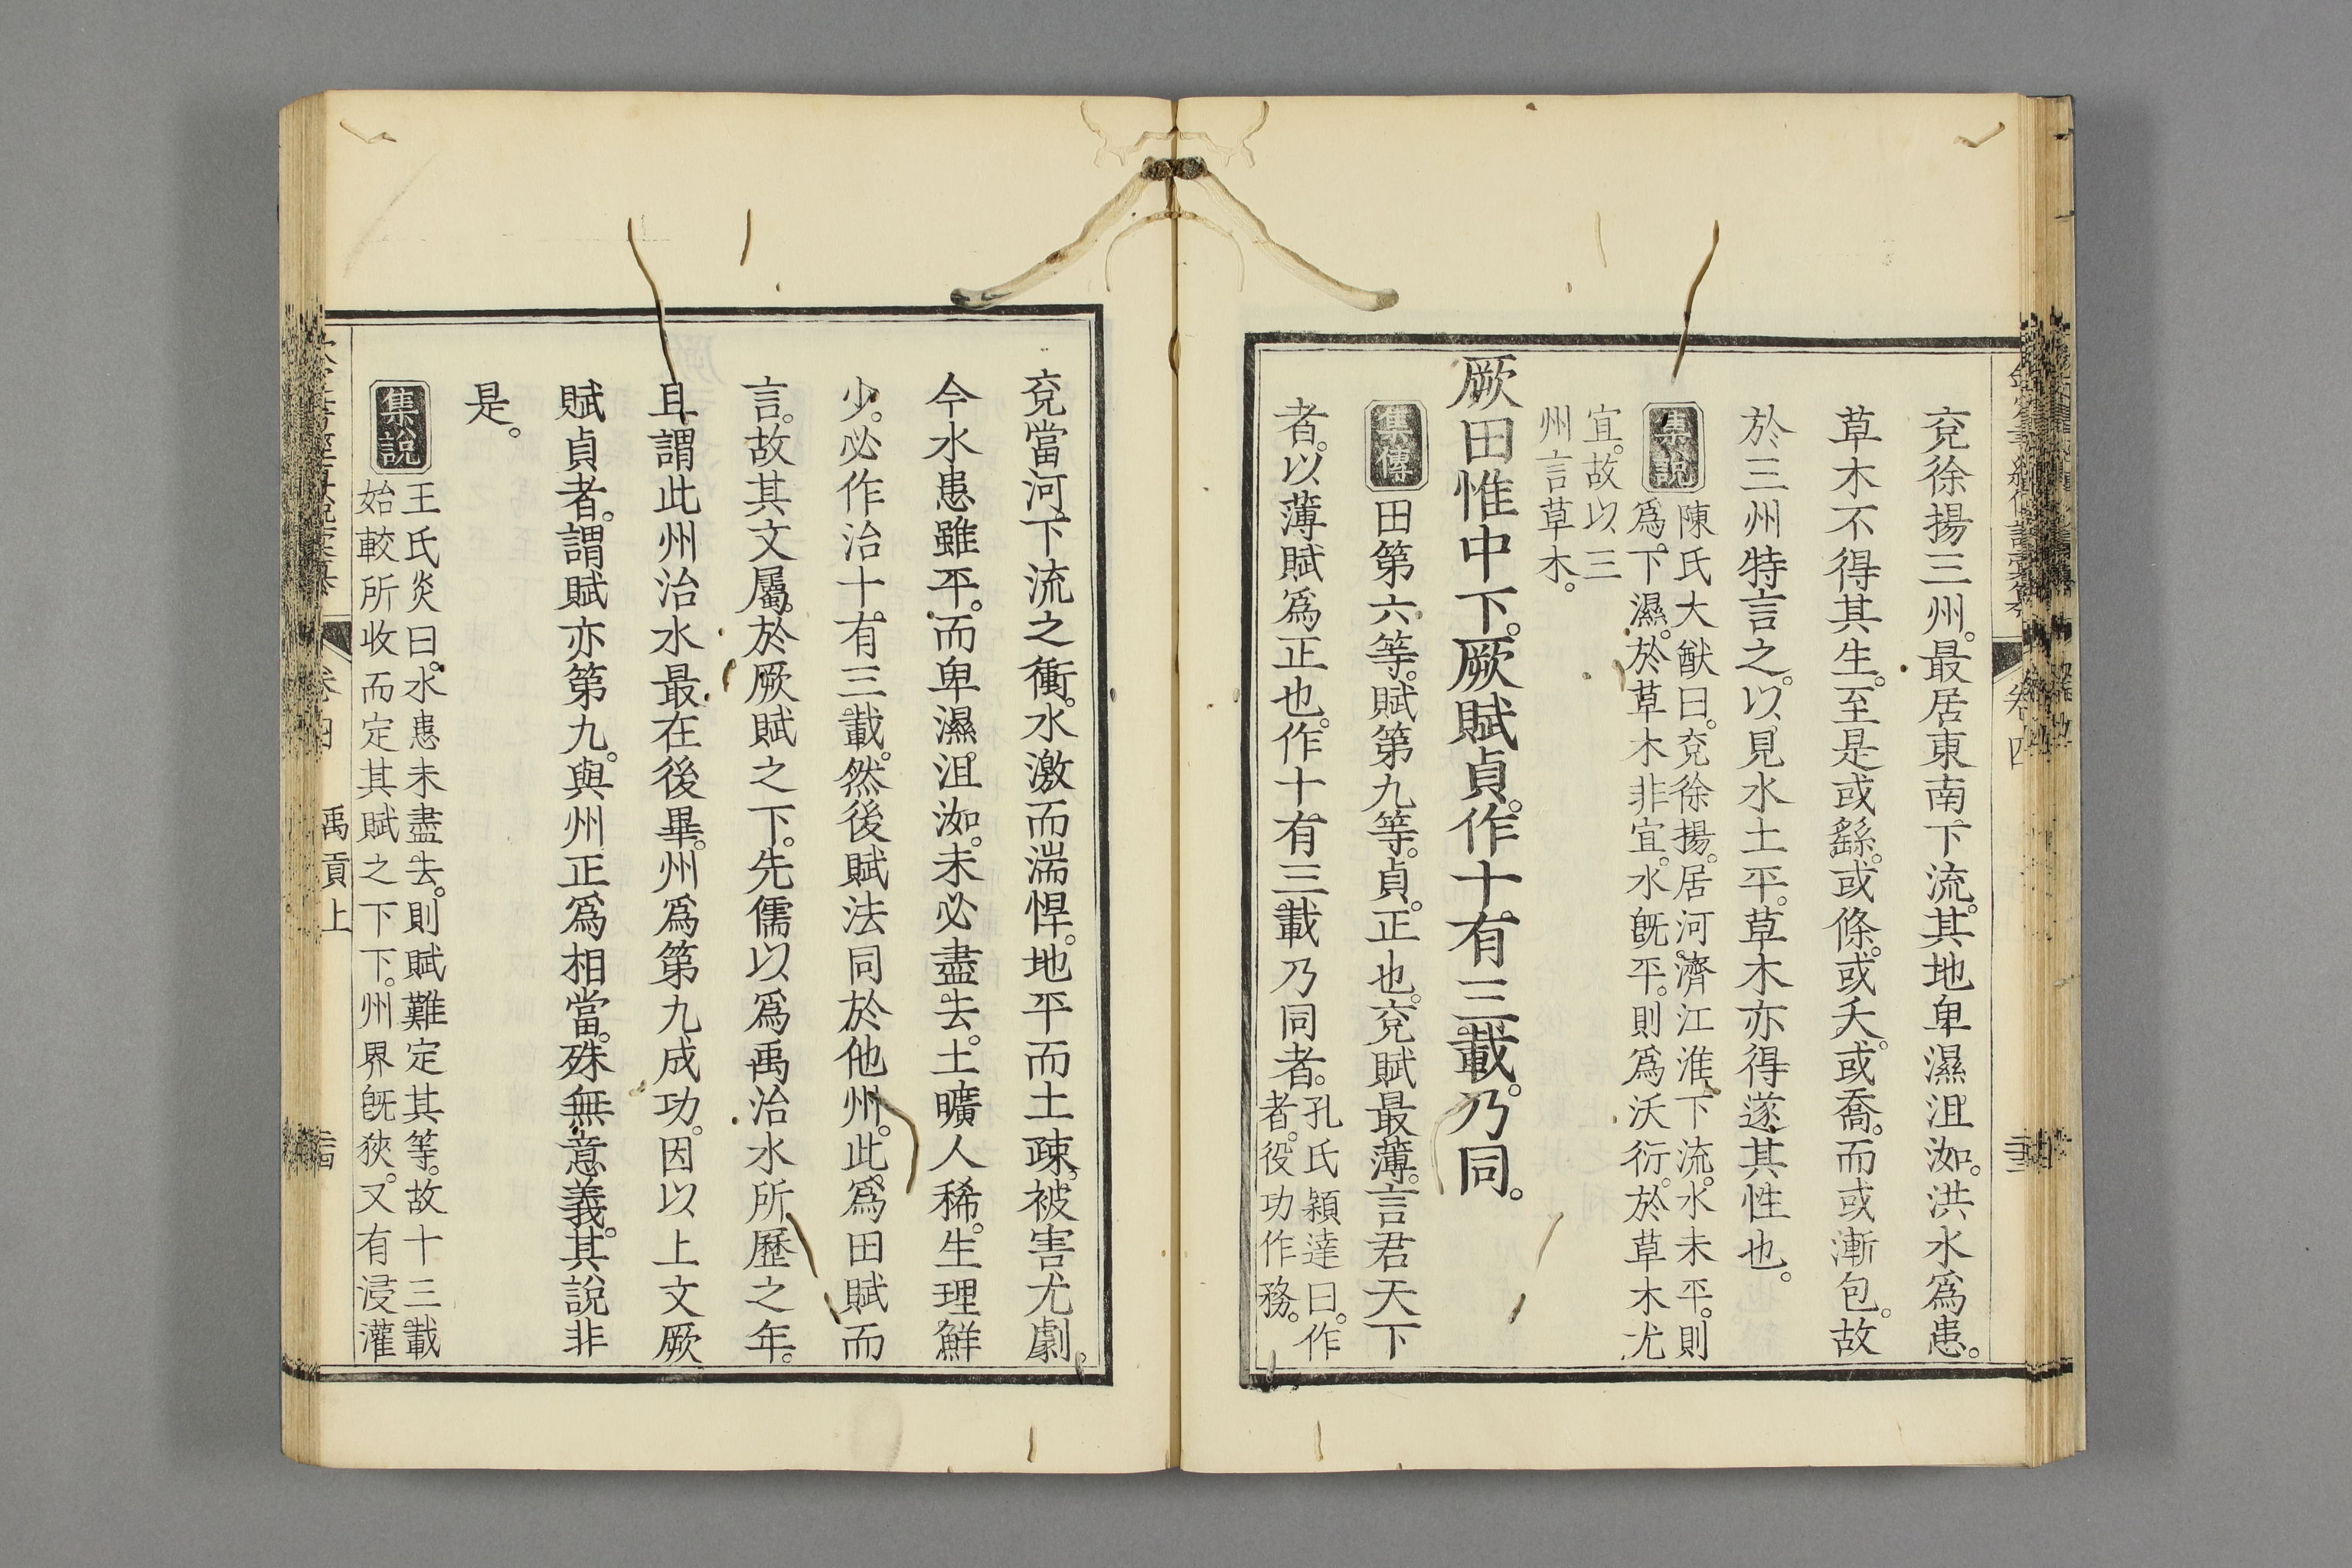 兗徐揚三州。最居東南下流。其地卑濕沮洳。洪水爲患。
草木不得其生。至是或繇。或條。或夭。或喬。而或漸包。故
於三州特言之。以見水土平。草木亦得遂其性也。
集說
陳氏大猷曰。兗徐揚。居河濟江淮下流。水未平。則
爲下濕。於草木非宜。水旣平。則爲沃衍。於草木尤
宜。故以三
州言草木。
厥田惟中下。厥賦貞。作十有三載。乃同。
集傳
田第六等。賦第九等。貞。正也。兗賦最薄。言君天下
者。以薄賦爲正也。作十有三載乃同者。
孔氏穎達曰。作
者。役功作務。
卷四
兗當河下流之衝。水激而湍悍。地平而土疎。被害尤劇。
今水患雖平。而卑濕沮洳。未必盡去。土曠人稀。生理鮮
少。必作治十有三載。然後賦法同於他州。此爲田賦而
言。故其文屬於厥賦之下。先儒以爲禹治水所歷之年。
且謂此州治水最在後畢。州爲第九成功。因以上文厥
賦貞者。謂賦亦第九。與州正爲相當。殊無意義。其說非
是。
集說
王氏炎曰。水患未盡去。則賦難定其等。故十三載
始較所收而定其賦之下下。州界旣狹。又有浸灌
禹貢上